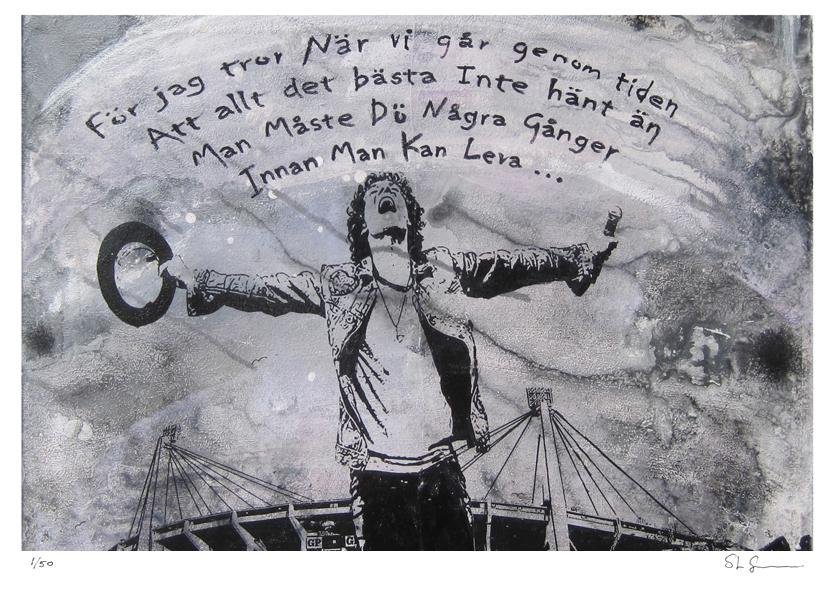 För jag tror När vi går genom tiden
Att allt det bästa Inte hänt än
Man Måste Dö Några Gånger
Innan Man Kan Leva ...
GP G
1/50